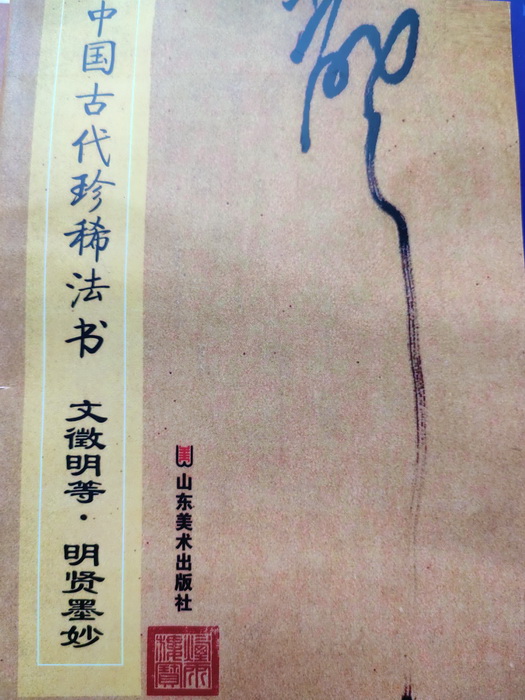 中国古代珍稀法书
文徵明等·明贤墨妙
山东美术出版社